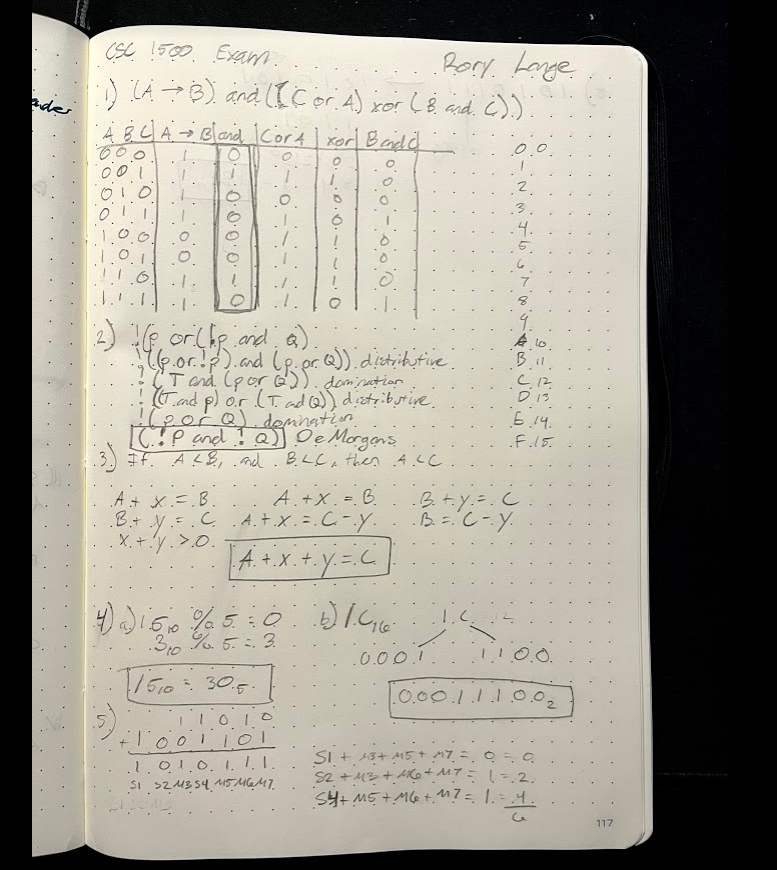 CSC 1500 Exam Rory Lange
1) (A → B) and ((C or A) xor (B and C))
A B C | A → B | and | C or A | xor | B and C
0 0 0 1 0 0 0 0
0 0 1 1 1 1 1 0
0 1 0 1 0 0 0 0
0 1 1 1 0 1 0 1
1 0 0 0 0 1 1 0
1 0 1 0 0 1 1 0
1 1 0 1 1 1 1 0
1 1 1 1 0 1 0 1
0 0
1
2
3
4
5
6
7
8
9
A 10
B 11
C 12
D 13
E 14
F 15
2) !(p or (!p and Q)
!((p or !p) and (p or Q)) distributive
!(T and (p or Q)) domination
!((T and p) or (T ad Q)) distributive
!(p or Q) domination
(!P and !Q) DeMorgans
3) If A < B, and B < C, then A < C
A + x = B A + x = B B + y = C
B + y = C A + x = C - y B = C - y
x + y > 0
A + x + y = C
4) a) 15₁₀ % 5 = 0 b) 1C₁₆ 1 C 12
3₁₀ % 5 = 3 0001 1100
15₁₀ = 30₅ 00011100₂
5) 1 1 0 1 0
+ 1 0 0 1 1 0 1
1 0 1 0 1 1 1
S1 S2 M3 S4 M5 M6 M7
S1 + M3 + M5 + M7 = 0 = 0
S2 + M3 + M6 + M7 = 1 = 2
S4 + M5 + M6 + M7 = 1 = 4
6
117